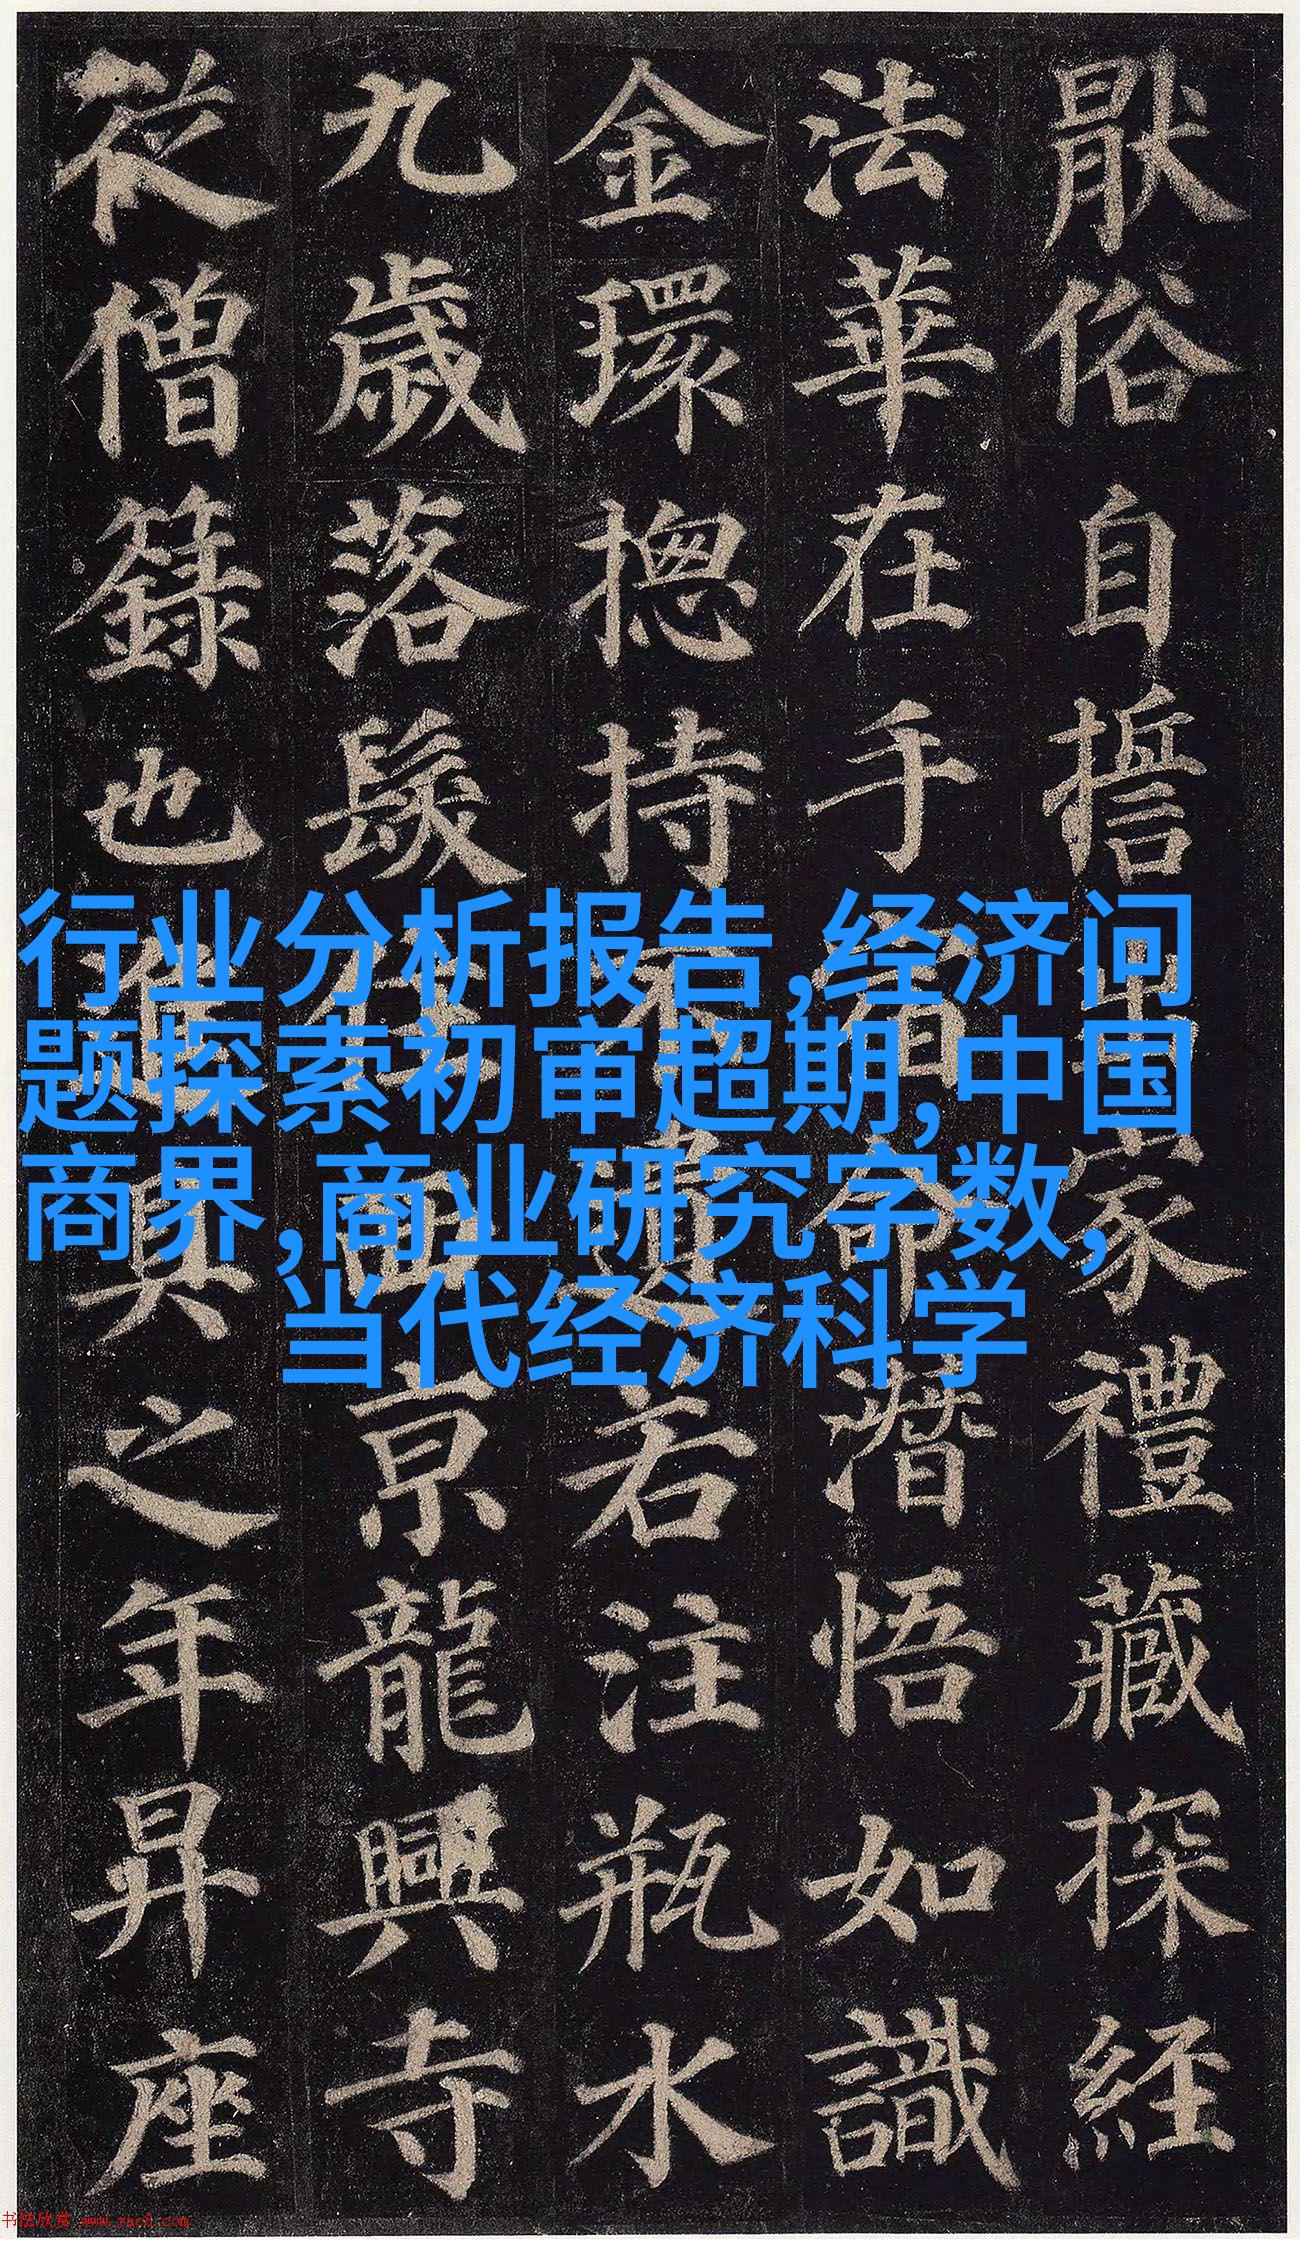 厭俗自誓出家禮藏探經
法華在手宿命潛悟如識
金環揔持不遺若注瓶水
九歲落髮住西京龍興寺
從僧籙也進具之年昇座
行业分析报告,经济问
题探索初审超期,中国
商界,商业研究字数,
当代经济科学
书法欣赏 www.yac8.com